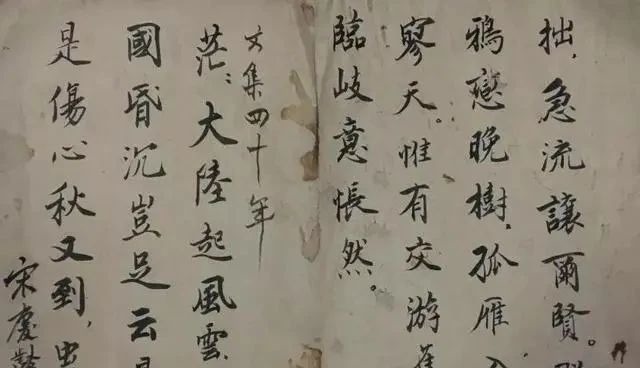 拙，急流讓爾賢。
鴉戀晚樹，孤雁入
寥天。惟有交游舊
臨歧意悵然。
文集四十年
茫〻大陸起風雲
國昏沉豈足云
是傷心秋又到，虫
宋慶齡